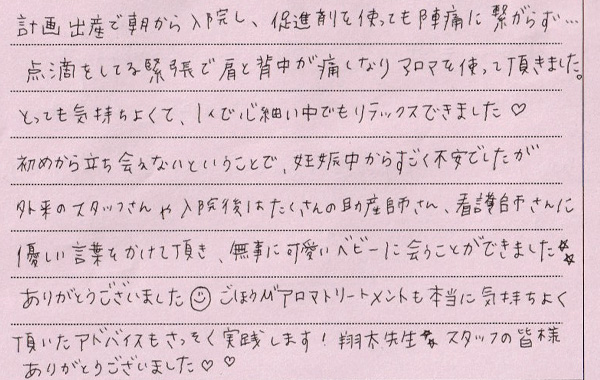 計画出産で朝から入院し、促進剤を使っても陣痛に繋がらず…
点滴をしてる緊張で肩と背中が痛しなりアロマを使って頂きました。
とっても気持ちよくて、1人で心細い中でもリラックスできました♡
初めから立ち会えないということで、妊娠中からすごく不安でしたが
外来のスタッフさんや入院後はたくさんの助産師さん、看護師さんに
優しい言葉をかけて頂き、無事に可愛いベビーに会うことができました☆☆
ありがとうございました☺ごほうびアロマトリートメントも本当に気持ちよく
頂いたアドバイスもさっそく実践します！翔太先生☆スタッフの皆様
ありがとうございました♡♡